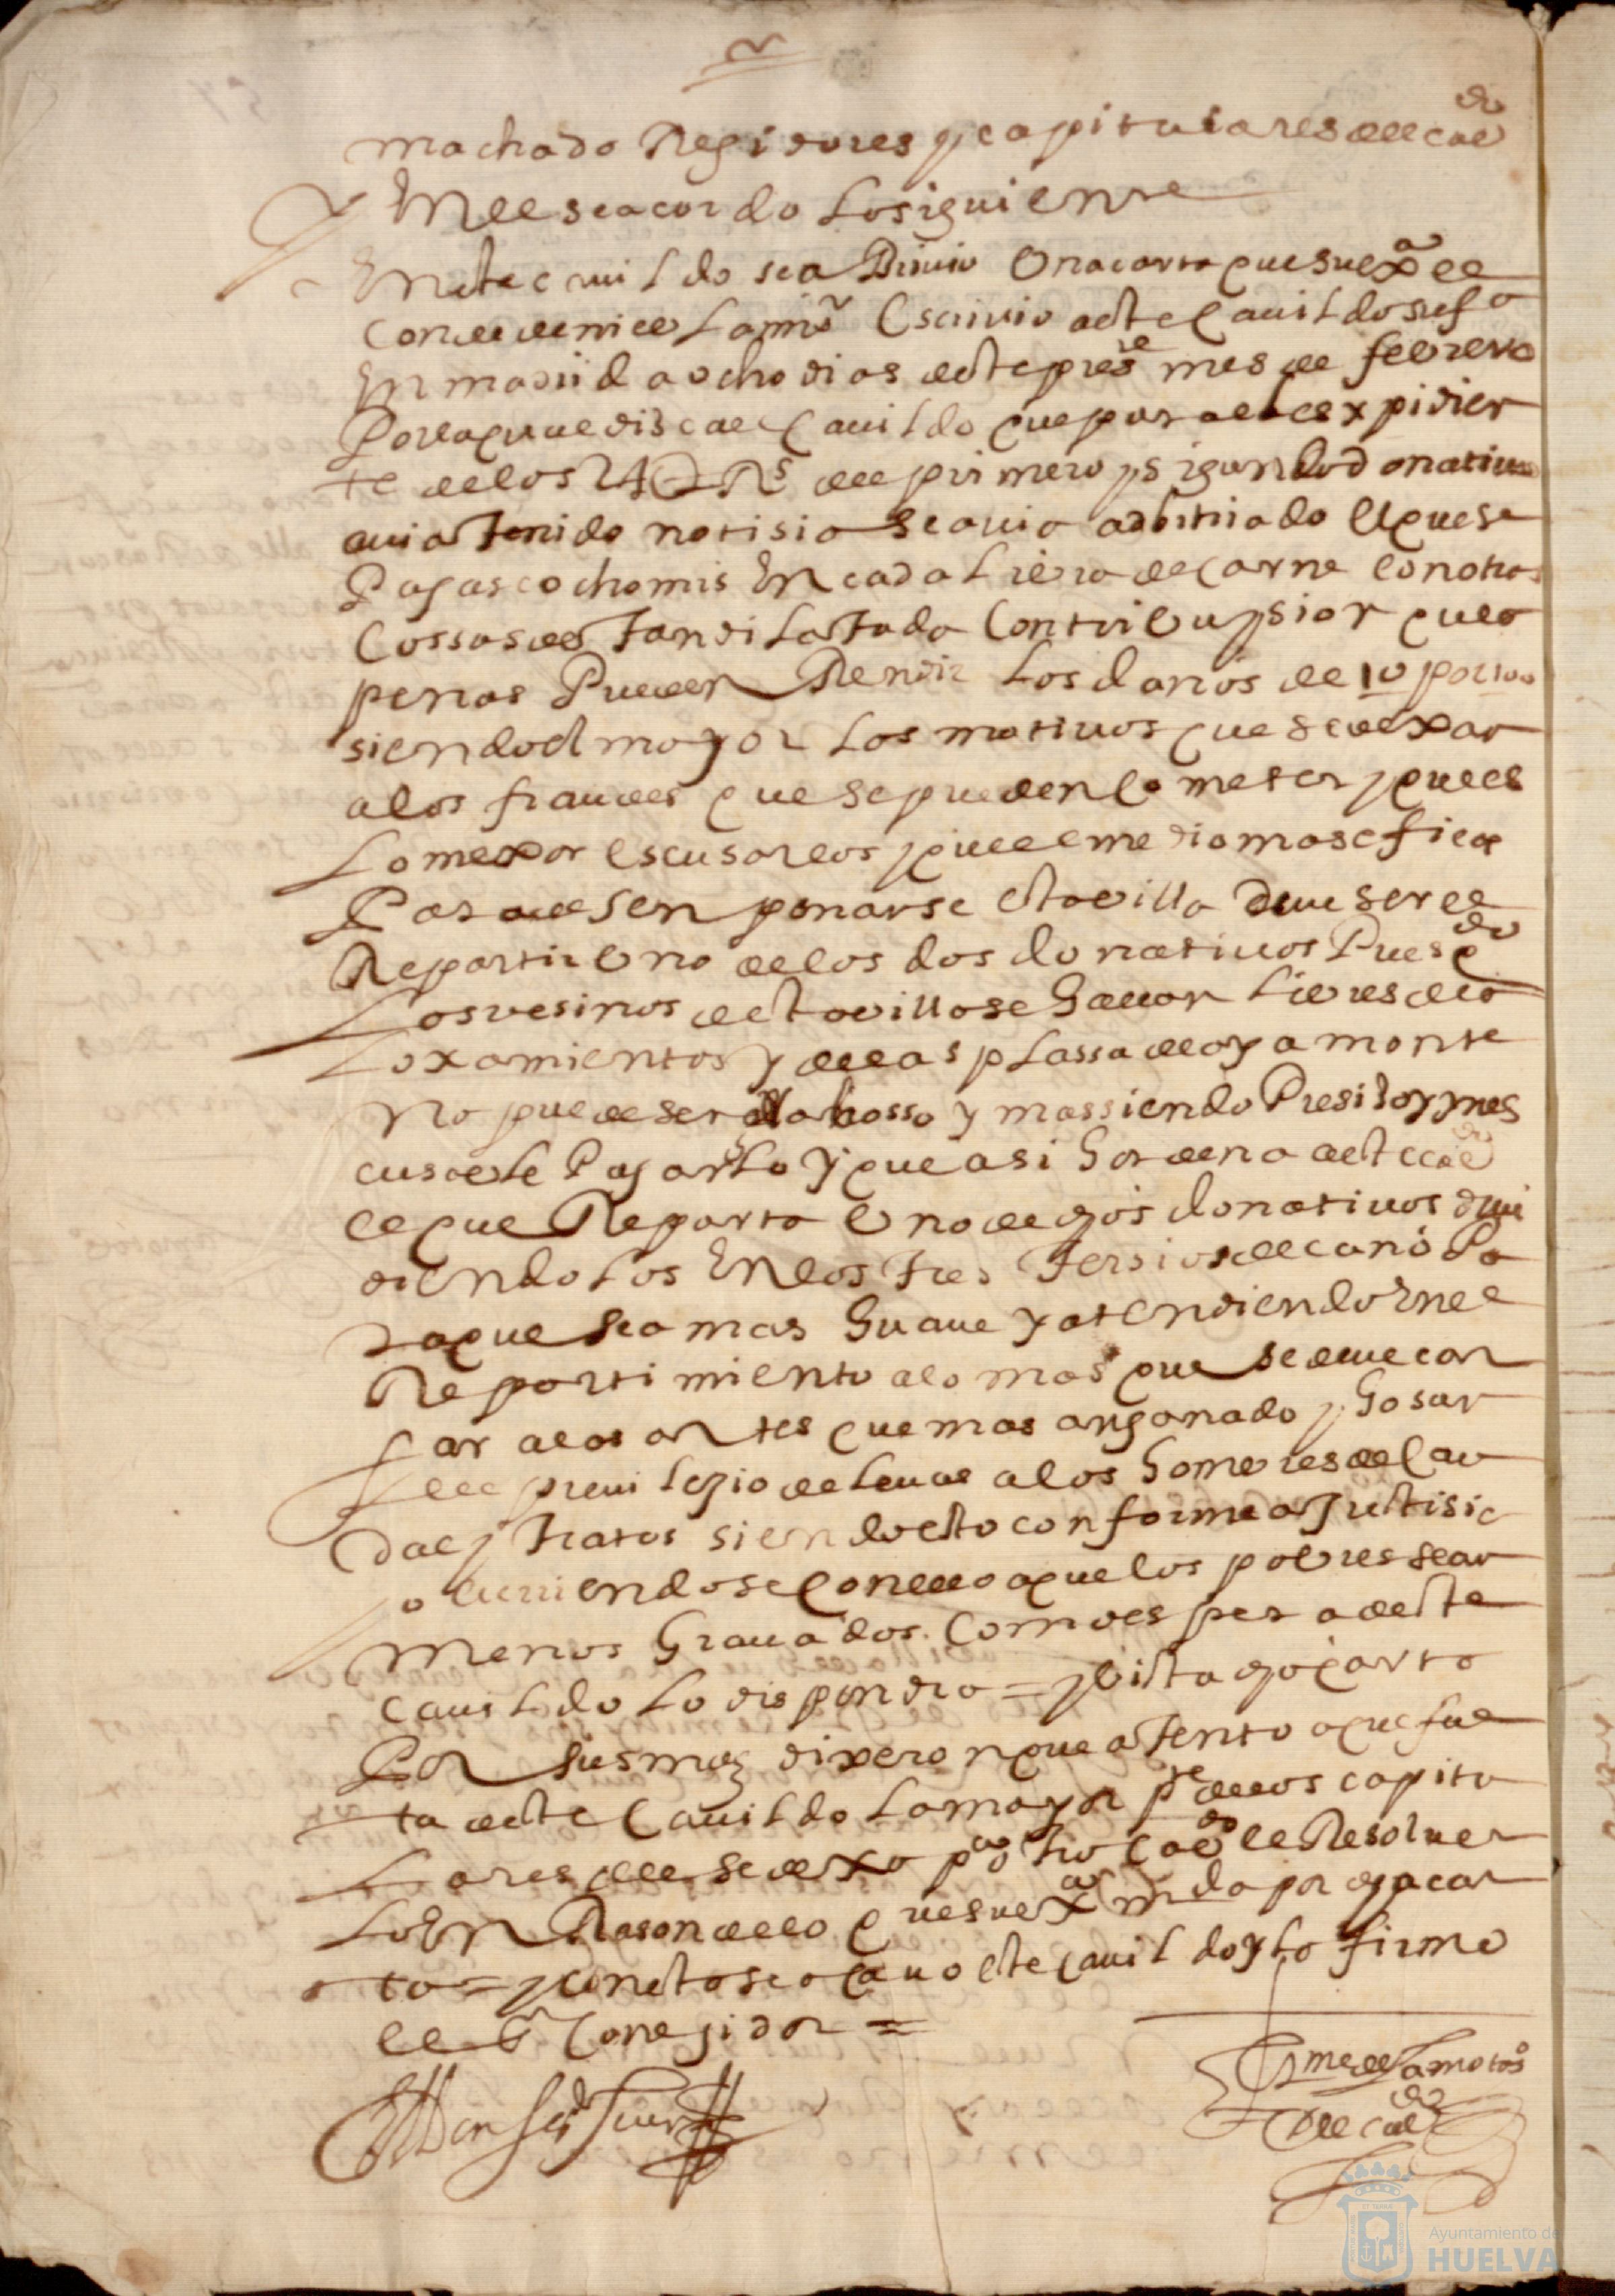 machado Regidores y capitulares de el cau.do
En el se acordo lo siguiente
En este cauildo se a Vinio Vna carta que su ex.a el
Conde de niebla mi s.r escriuio a este Cauildo su f.a
En madrid a ocho dias deste pres.te mes de febrero
Por la qual dise a el Cauildo que para el expidien
te de los 24 U R.s de el primero y sigundo donatiuo
auia tenido notisia se auia adbitriado el que se
Pagase ocho mrs En cada libra de Carne con otras
Cossas de tan dilatada Contribuysion que a
penas Pueden Rendir los daños de 10 por 100
siendo el mayor los motiuos que se dexan
a los fraudes que se pueden Cometer y que es
lo mexor escusarlos y que el medio mas eficas
Para desenpeñarse esta villa deue ser el
Repartir Vno de los dos donatiuos Pues q.do
Los vesinos de esta villa se hallan libres de a
loxamientos y de la plassa de ayamonte
no puede ser grabosso y mas siendo Presiso y ynes
cusable Pagarlo y que asi hordena a este cau.do
el que Reparta Vno de dhos donatiuos diui
diendolos En los tres tersios de el año Pa
ra que sea mas suaue y atendiendo En el
Repartimiento a lo mas que se deue car
gar a los antes que mas an ganado y Gosan
de el preuilegio de leuar a los hombres de Cau
dal y tratos siendo esto conforme a Justisia
y escusandose Con ello a que los pobres sean
menos Grauados. Como espera de este
cauildo lo dispondra = y Vista dha carta
Por sus mds dixeron que atento a que fal
ta a este Cauildo la mayor p.te de los capitu
lares de el se dexa p.a otro Cau.do el Resoluer
lo En Rason de lo que su ex.a manda por dha car
ta = y Con esto se acauo este Cauildo y lo firmo
el s.r Corregidor =
Gme de Lamotos
de el cau.do
Ayuntamiento de
HUELVA